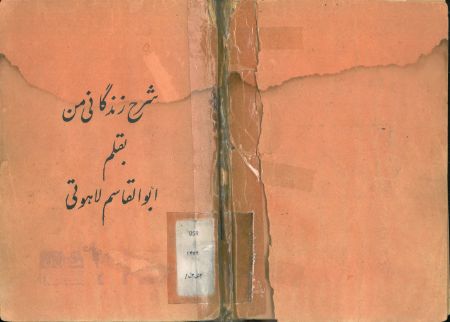 شرح زندگانی من
بقلم
ابوالقاسم لاهوتی